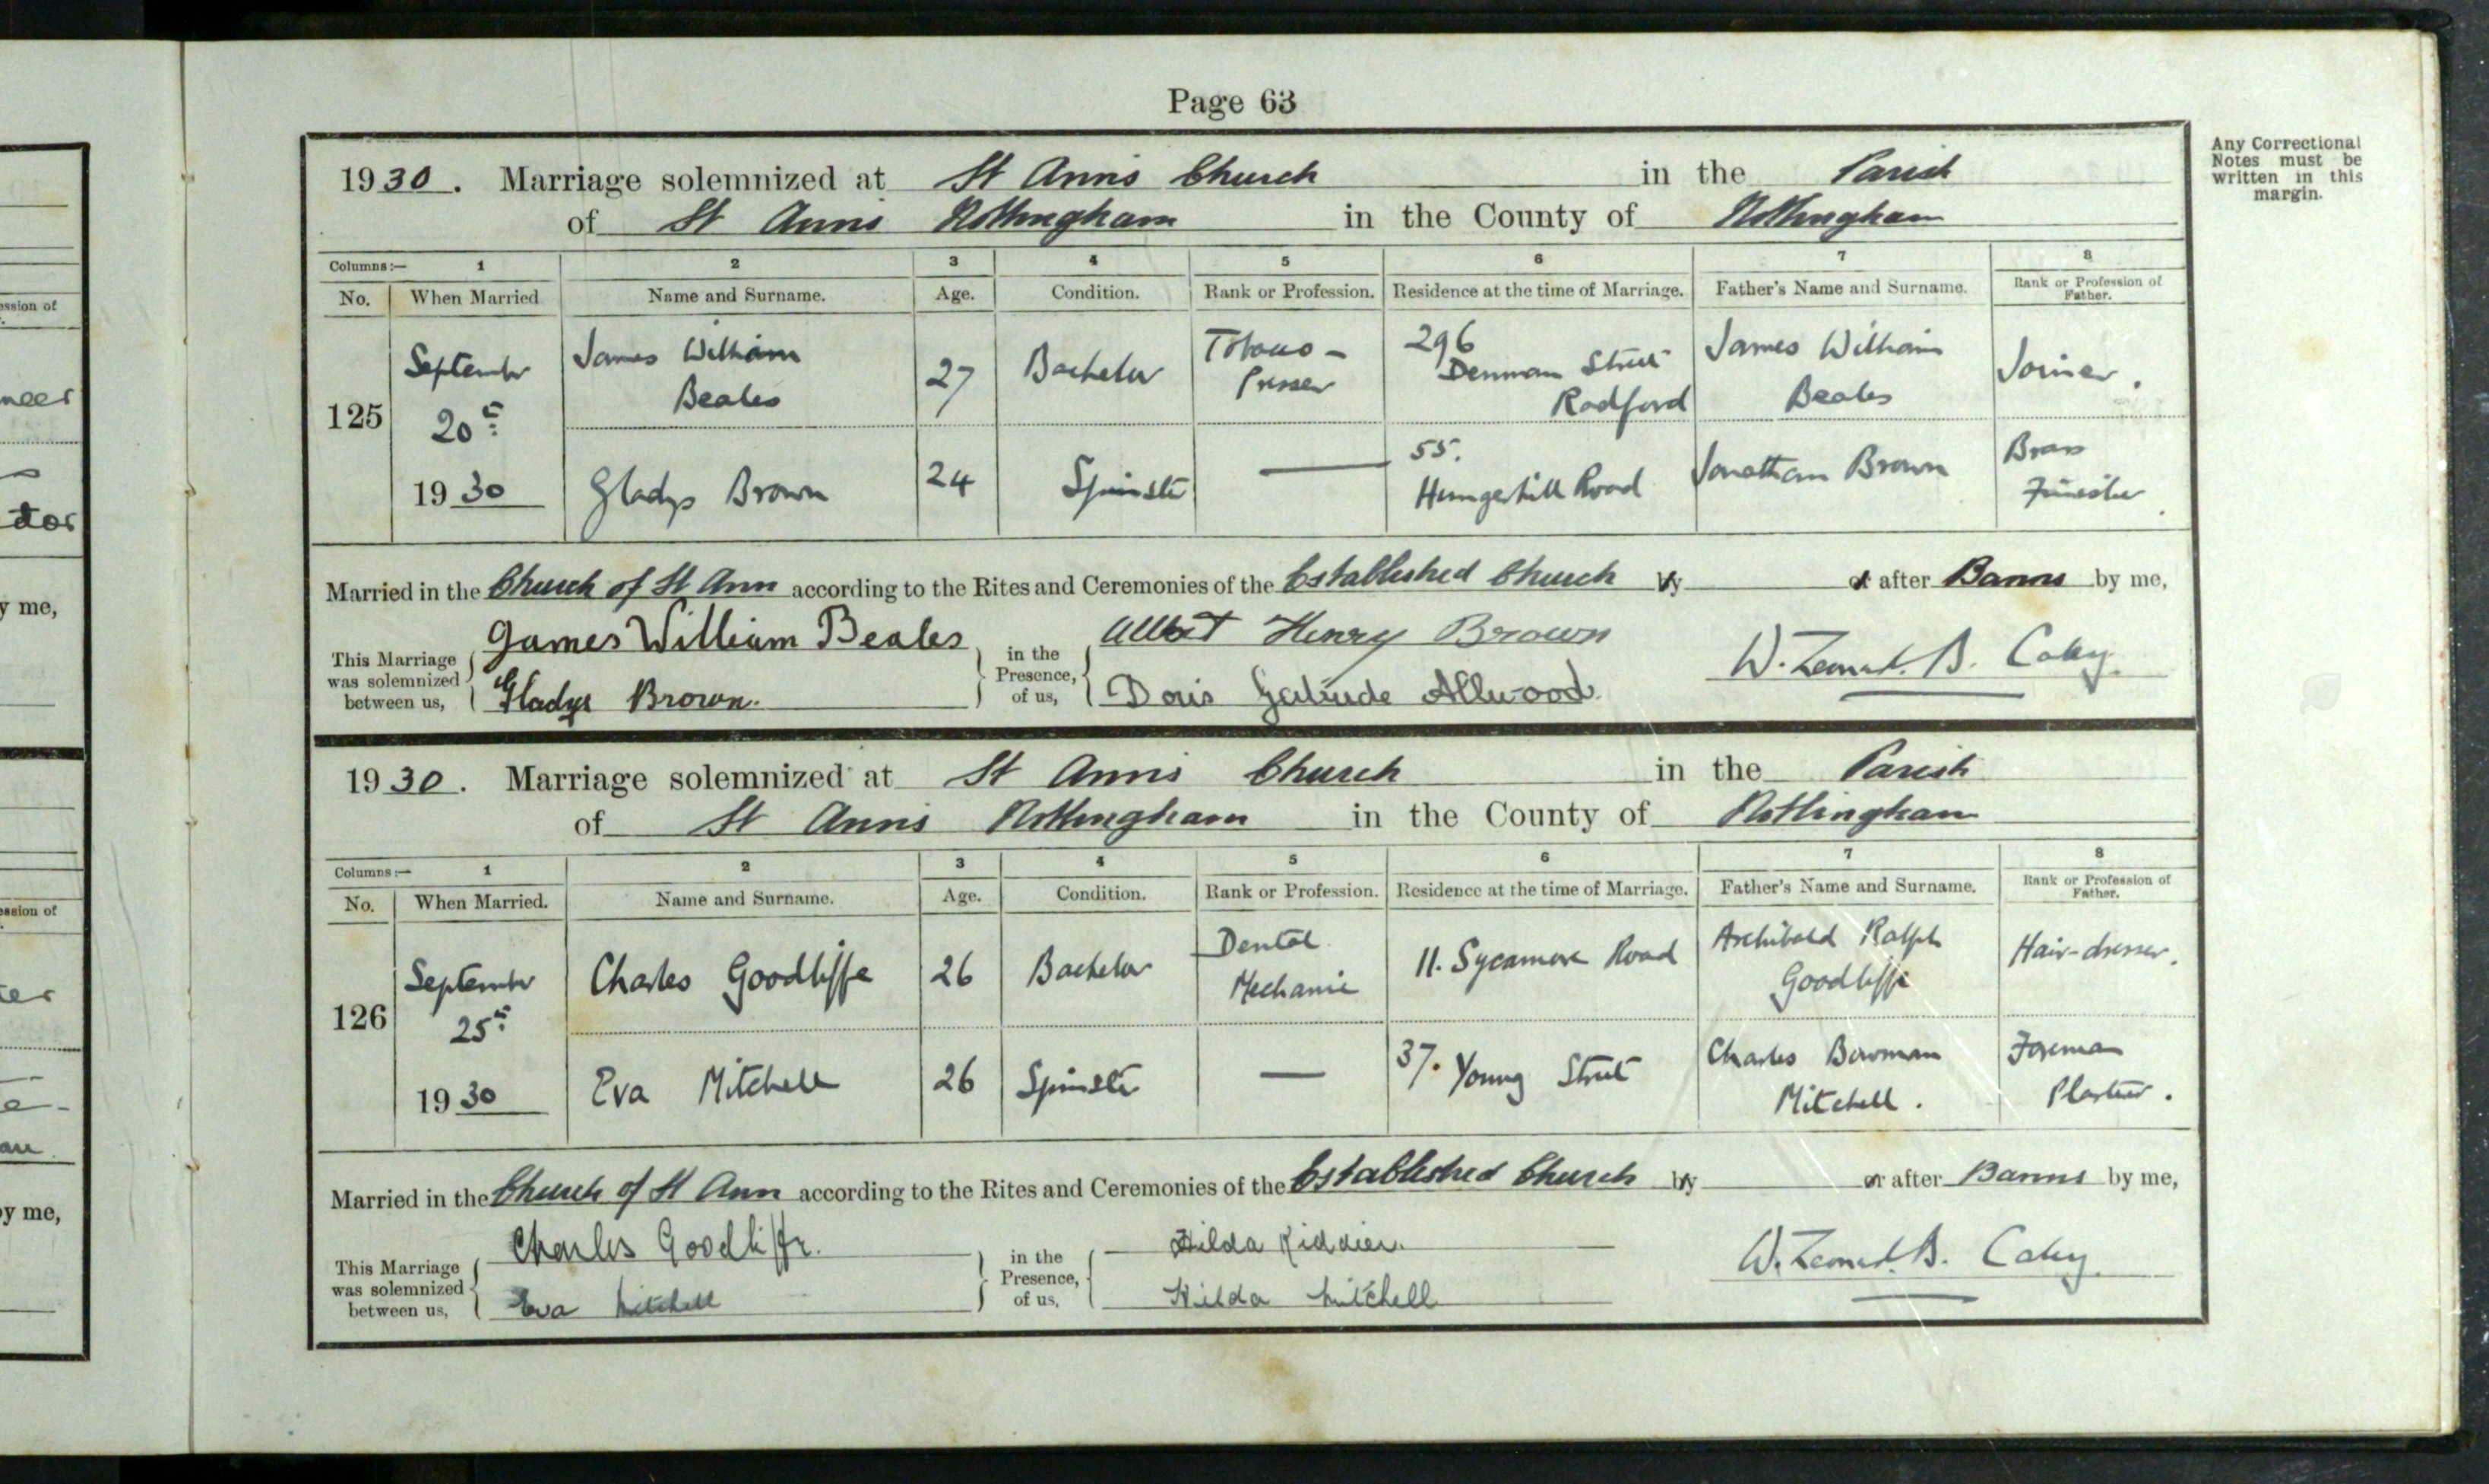 Page 63
Any Correctional
Notes must be
written in this
margin.
1930. Marriage solemnized at St Anns Church in the Parish
of St Anns Nottingham in the County of Nottingham
Columns:— 1 2 3 4 5 6 7 8
No. When Married Name and Surname. Age. Condition. Rank or Profession. Residence at the time of Marriage. Father's Name and Surname. Rank or Profession of Father.
125
September
20th
1930
James William
Beales
27
Bachelor
Tobacco-
Presser
296
Denman Street
Radford
James William
Beales
Joiner.
Gladys Brown
24
Spinster
—
55.
Hungerhill Road
Jonathan Brown
Brass
Finisher.
Married in the Church of St Ann according to the Rites and Ceremonies of the Established Church by or after Banns by me,
This Marriage
was solemnized
between us,
James William Beales
Gladys Brown.
in the
Presence,
of us,
Albert Henry Brown
Doris Gertrude Allwood
W. B. Caley.
1930. Marriage solemnized at St Anns Church in the Parish
of St Anns Nottingham in the County of Nottingham
Columns:— 1 2 3 4 5 6 7 8
No. When Married. Name and Surname. Age. Condition. Rank or Profession. Residence at the time of Marriage. Father's Name and Surname. Rank or Profession of Father.
126
September
25th
1930
Charles Goodliffe
26
Bachelor
Dental
Mechanic
11. Sycamore Road
Archibald Ralph
Goodliffe
Hair-dresser.
Eva Mitchell
26
Spinster
—
37. Young Street
Charles Bowman
Mitchell.
Foreman
Plasterer.
Married in the Church of St Ann according to the Rites and Ceremonies of the Established Church by or after Banns by me,
This Marriage
was solemnized
between us,
Charles Goodliffe.
Eva Mitchell
in the
Presence,
of us,
Hilda Kiddier.
Hilda Mitchell
W. B. Caley.